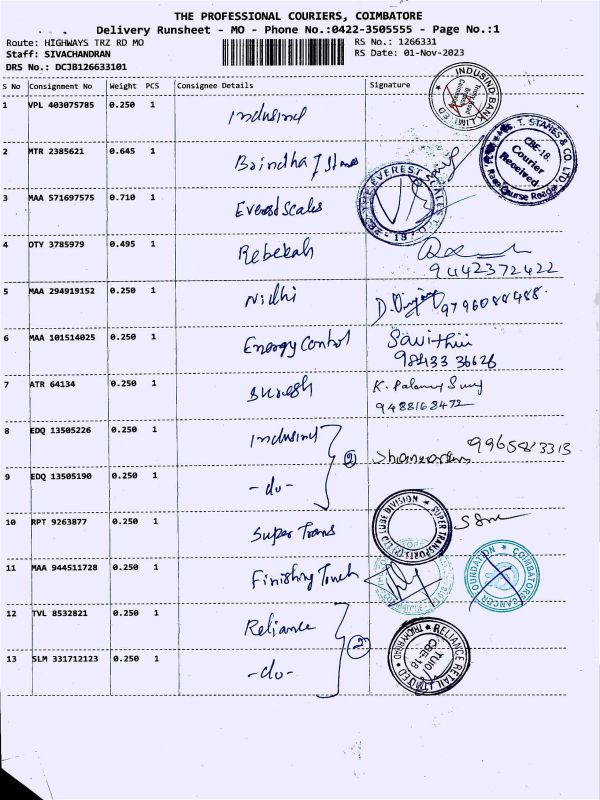 THE PROFESSIONAL COURIERS, COIMBATORE
Delivery Runsheet - MO - Phone No.:0422-3505555 - Page No.:1
Route: HIGHWAYS TRZ RD MO RS No.: 1266331
Staff: SIVACHANDRAN RS Date: 01-Nov-2023
DRS No.: DCJB126633101
S No Consignment No Weight PCS Consignee Details Signature
1 VPL 403075785 0.250 1 Indusind
INDUSIND BANK LIMITED
2 MTR 2385621 0.645 1
T. STANES & CO. LTD, CBE-18. Courier Received Race Course Road
3 MAA 571697575 0.710 1 Everest Scales
THE EVEREST SCALES CO
4 OTY 3785979 0.495 1 Rebekah
9442372422
5 MAA 294919152 0.250 1 Nidhi
9796088488
6 MAA 101514025 0.250 1 Energy Control
98433 36626
7 ATR 64134 0.250 1 Suresh
9488168472
8 EDQ 13505226 0.250 1 Indusind
2
9 EDQ 13505190 0.250 1 -do-
10 RPT 9263877 0.250 1 Super Trans
SUPER TRANSPORTS (P) LTD LUBE DIVISION
11 MAA 944511728 0.250 1 Finishing Touch
COIMBATORE CANCER FOUNDATION
12 TVL 8532821 0.250 1 Reliance
2
RELIANCE RETAIL LIMITED TRICHY ROAD CBE-18
13 SLM 331712123 0.250 1 -do-